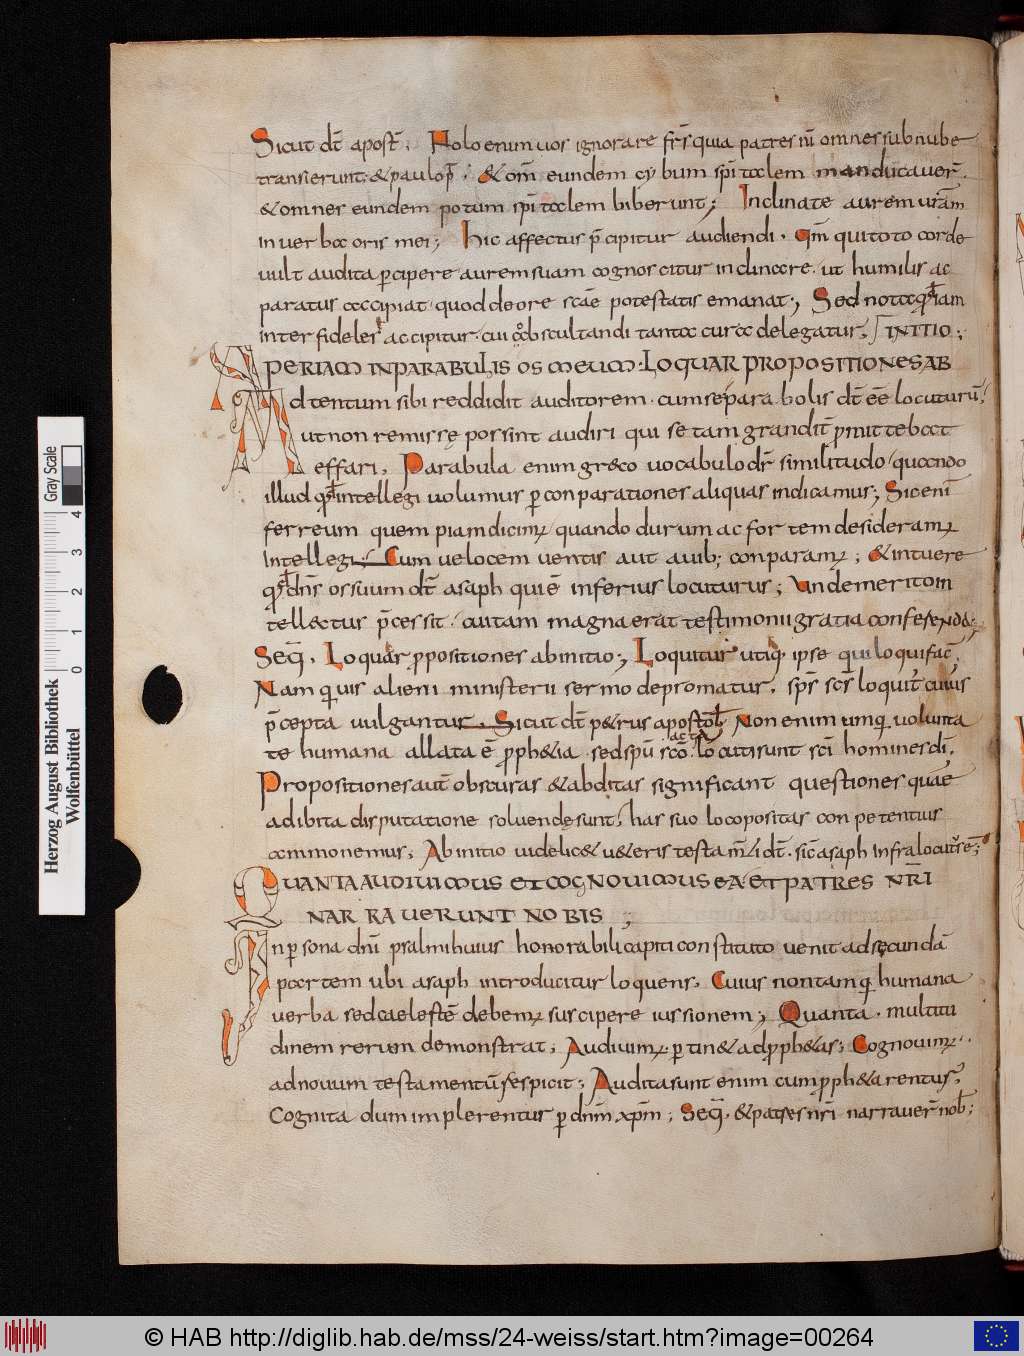 Sicut dt̄ apost̄. Nolo enim uos ignorare fr̄s quia patres nr̄i omnes sub nube
transierunt. & paulo p̄. & om̄s eundem cybum spītalem manducauer̄.
& omnes eundem potum spītalem biberunt; Inclinate aurem ur̄am
in uerba oris mei; Hic affectus p̄cipitur audiendi. qm̄ qui toto corde
uult audita percipere aurem suam cognoscitur inclinare. ut humilis ac
paratus accipiat quod de ore scāe potestatis emanat; Sed nota quod iam
inter fideles accipitur. cui obscultandi tanta cura delegatur. INITIO;
APERIAM IN PARABULIS OS MEUM. LOQUAR PROPOSITIONES AB
Adtentum sibi reddidit auditorem. cum se parabolis dt̄ eē locuturū.
ut non remisse possint audiri qui se tam grandit̄
effari. Parabula enim greco uocabulo dr̄ similitudo quando
illud quod intellegi uolumus per conparationes aliquas indicamus; Sic eni
ferreum quempiam dicim; quando durum ac fortem desideram;
intellegi. Cum uelocem uentis aut auib; conparam; & intuere
quod dn̄s os suum dt̄ asaph qui ē inferius locuturus; Unde merito in
tellectus p̄cessit. cum tam magna erat testimonii gratia conferenda.
Seq̄. Loquar propositiones ab initio; Loquitur utiq; ipse qui loqui fac̄.
Nam quis alieni ministerii sermo depromatur. sps̄ scs̄ loquit̄ cuius
p̄cepta uulgantur. Sicut dt̄ p&rus apostol̄ Non enim umq; uolunta
te humana allata ē proph&ia. sed spū scō acta locuti sunt sci homines di.
Propositiones aut̄ obscuras & abditas significant questiones quae
adibita disputatione soluende sunt. has suo loco positas conpetentius
ammonemus; Ab initio uidelic& u&eris testam̄ti dt̄. sic asaph infra locut'
QUANTA AUDIUIMUS ET COGNOUIMUS EA ET PATRES NR̄I
NARRAUERUNT NOBIS ;
In persona dn̄i psalmi huius honorabili capiti constituto uenit ad secundā
partem ubi asaph introducitur loquens. Cuius non tamq; humana
uerba sed caelestē debem; suscipere iussionem; Quanta. multitu
dinem rerum demonstrat; Audiuim; pertin& ad proph&as; Cognouim;
ad nouum testamentū respicit; Audita sunt enim cum proph&arentur.
Cognita dum implerentur per dn̄m xp̄m; Seq̄. & patres nr̄i narrauer̄ nob̄;
Herzog August Bibliothek
Wolfenbüttel
Gray Scale
0 1 2 3 4
© HAB http://diglib.hab.de/mss/24-weiss/start.htm?image=00264